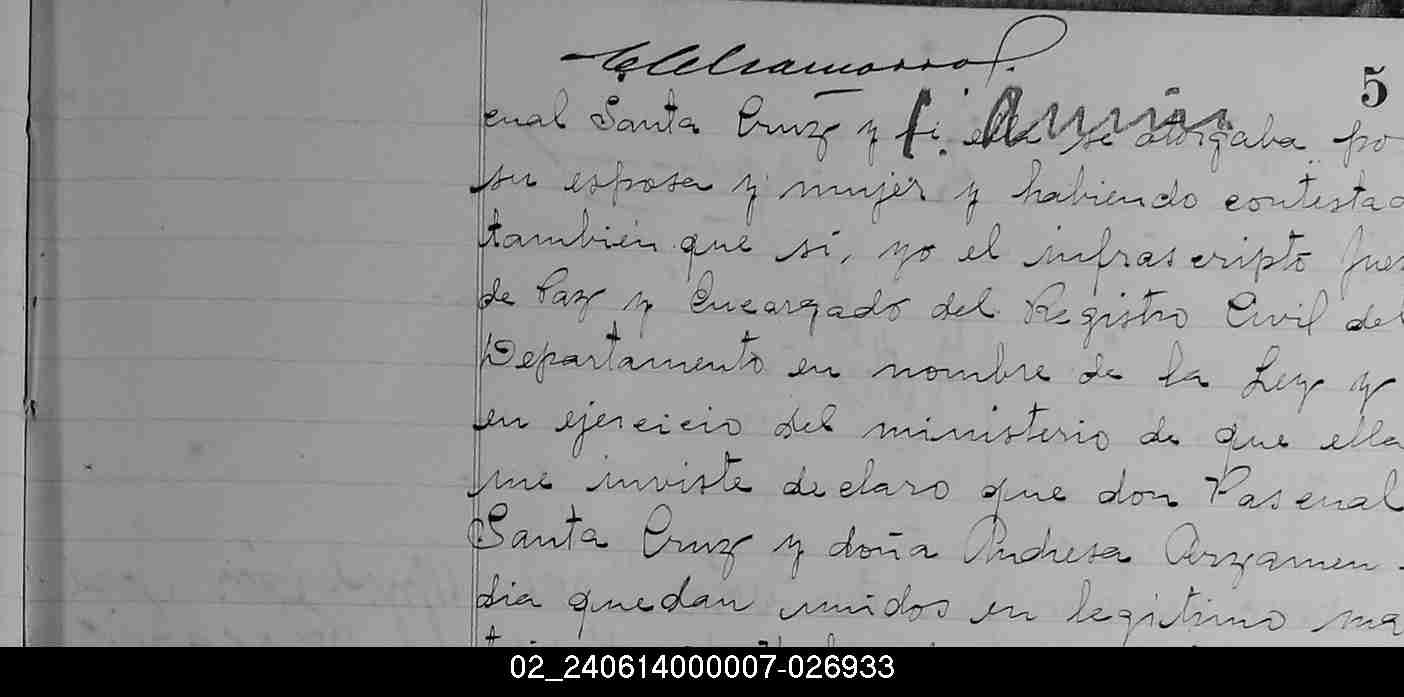 5
cual Santa Cruz y si ella se otorgaba po
su esposa y mujer y habiendo contestad
también que si, yo el infrascripto Juez
de Paz y Encargado del Registro Civil del
Departamento en nombre de la Ley y
en ejercicio del ministerio de que ella
me inviste declaro que don Pascual
Santa Cruz y doña Andresa Arzamen-
dia quedan unidos en legitimo ma
02_240614000007-026933